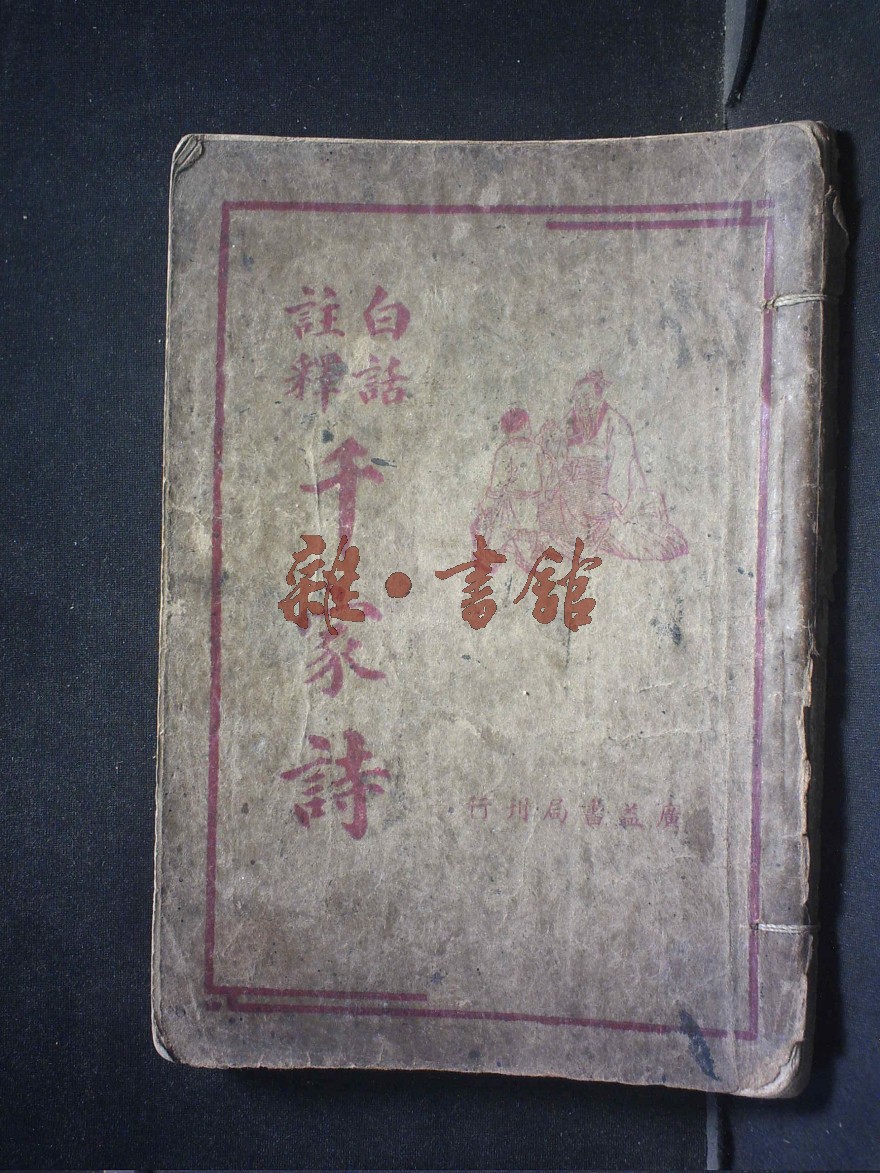 白話
註釋
千家詩
廣益書局刋行
雜·書館